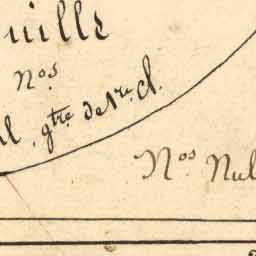 uille
Nos
l. gtre de Nre cl.
Nos Nul